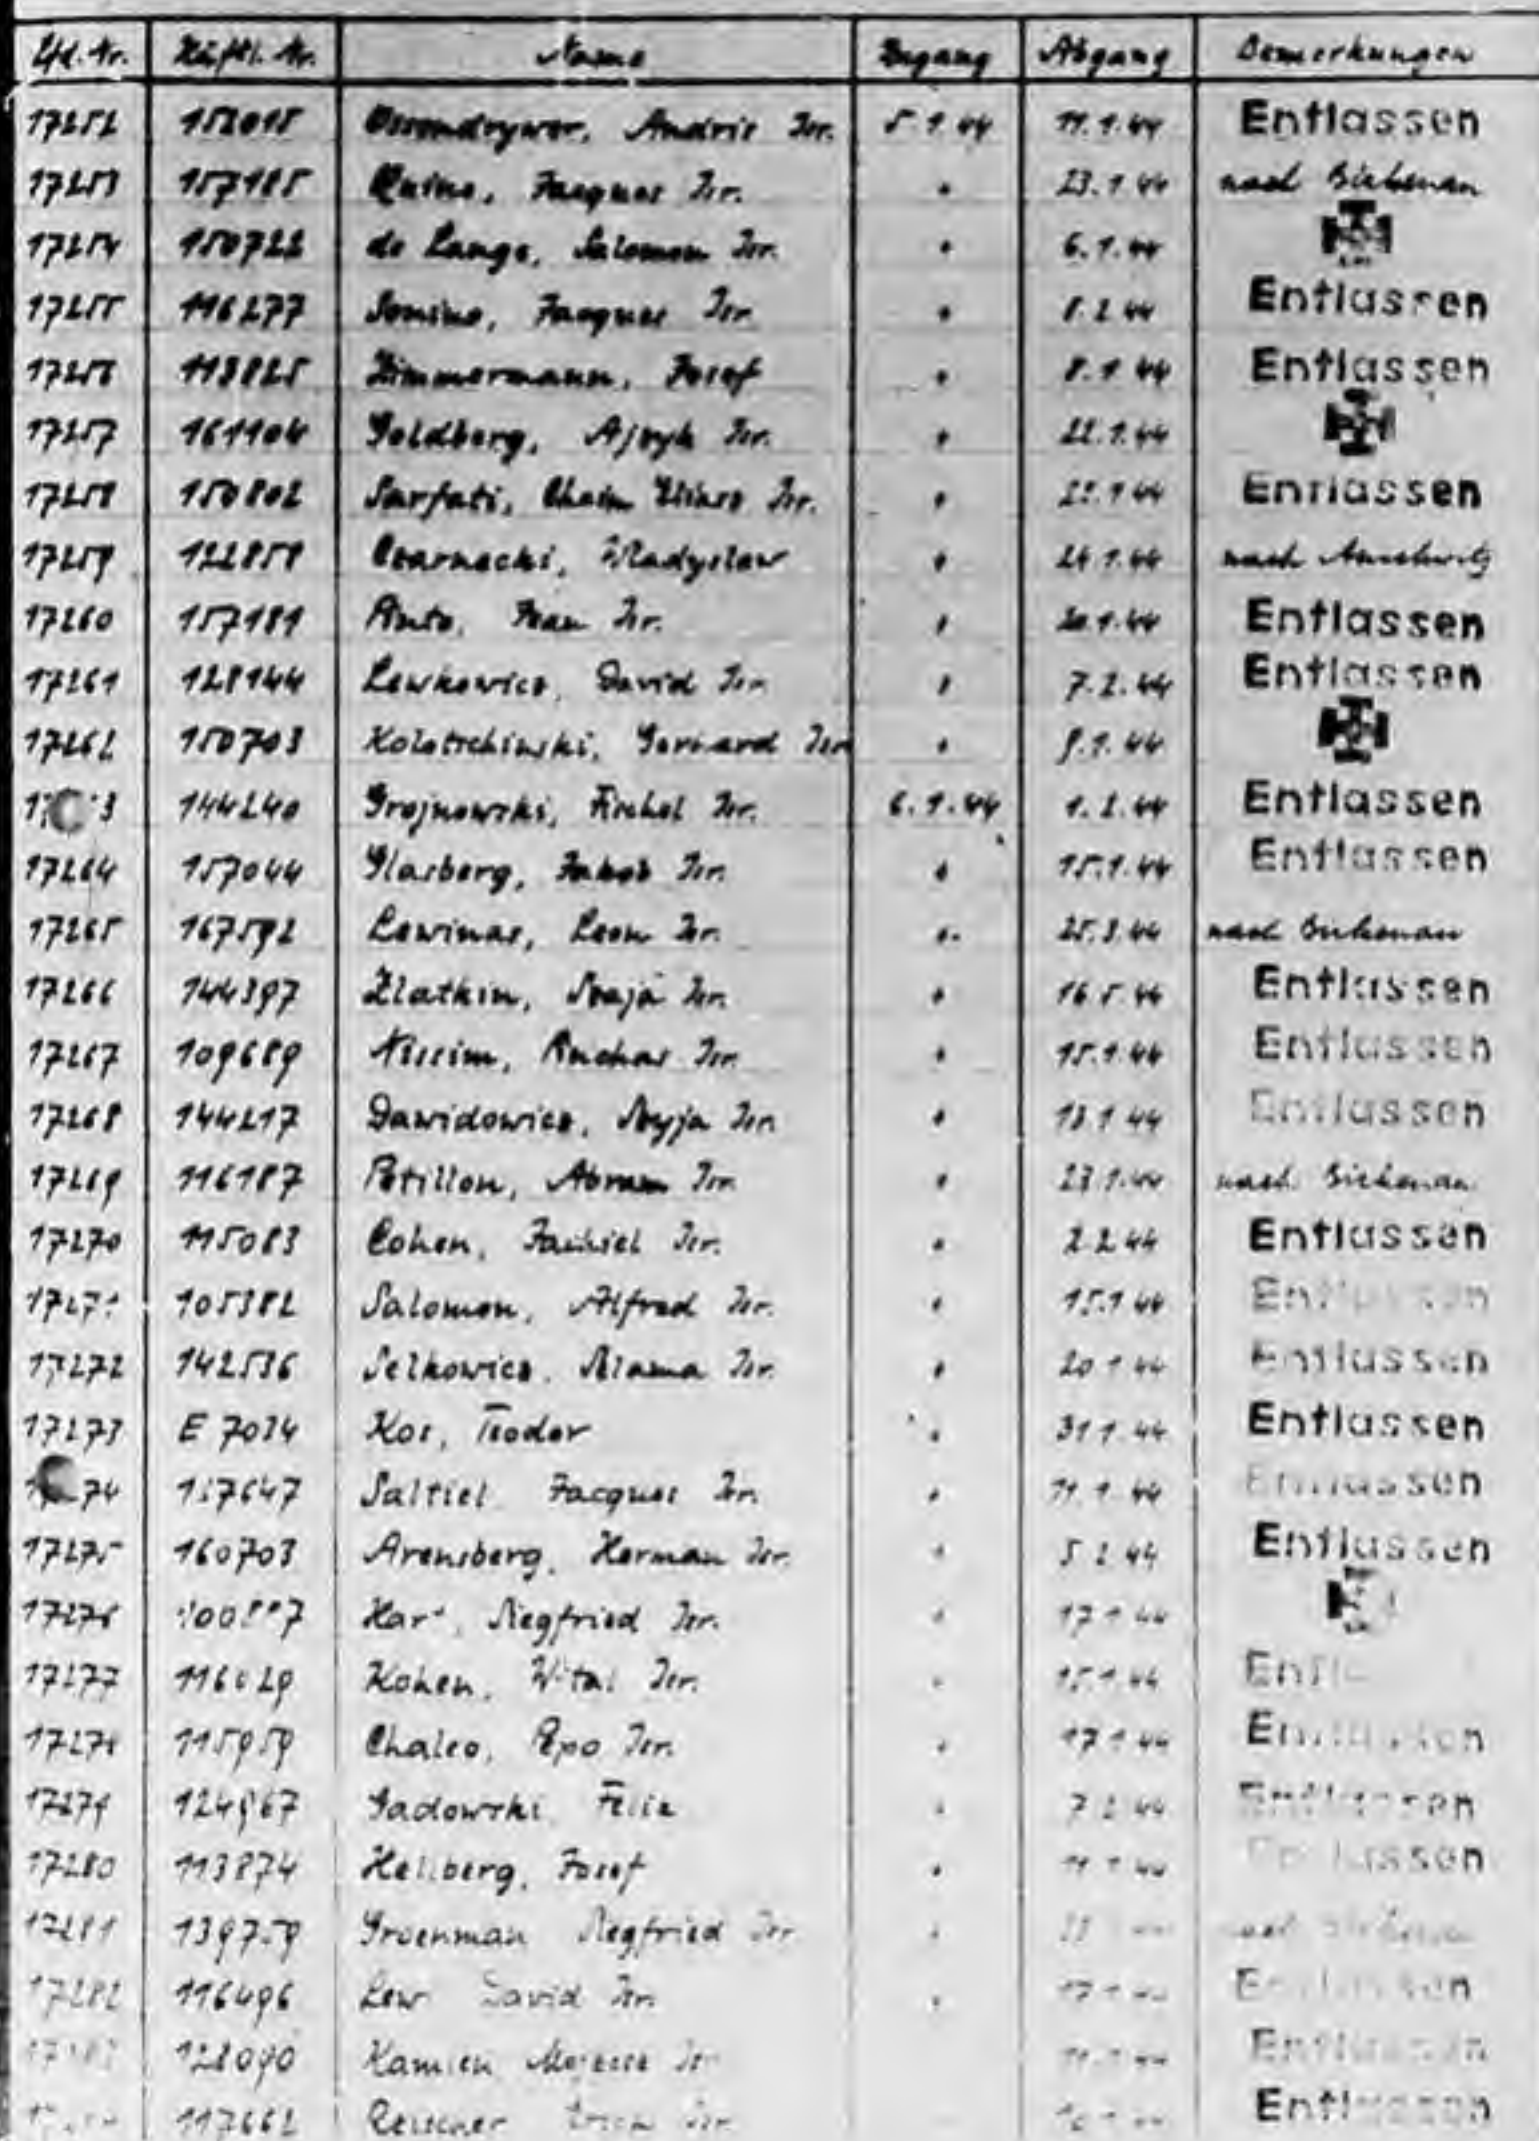 Lfd. Nr. Häftl. Nr. Name Zugang Abgang Bemerkungen
17252 152015 Andris Isr. 5.1.44 11.1.44 Entlassen
17253 157185 Jacques Isr. " 23.1.44 nach Birkenau
17254 150722 de Lange, Salomon Isr. " 6.1.44
17255 116277 Jacques Isr. " 8.2.44 Entlassen
17256 113825 Zimmermann, Josef " 8.1.44 Entlassen
17257 161104 Goldberg, Ajzyk Isr. " 22.1.44
17258 150802 Sarfati, Chaim Isr. " 22.1.44 Entlassen
17259 122858 Czarnecki, Wladyslaw " 24.1.44 nach Auschwitz
17260 157181 Pinto, Jean Isr. " 20.1.44 Entlassen
17261 128144 Lewkowicz, David Isr. " 7.2.44 Entlassen
17262 150703 Kolotschinski, Gerhard Isr. " 9.1.44
144240 Grojnowski, Fischel Isr. 6.1.44 1.2.44 Entlassen
17264 157044 Glasberg, Jakob Isr. " 15.1.44 Entlassen
17265 167592 Lewinas, Leon Isr. " 25.3.44 nach Birkenau
17266 144397 Zlatkin, Isr. " 16.5.44 Entlassen
17267 109689 Nissim, Isr. " 15.1.44 Entlassen
17268 144217 Dawidowicz, Isr. " 13.1.44 Entlassen
17269 116187 Petillon, Abram Isr. " 23.1.44 nach Birkenau
17270 115083 Cohen, Isr. " 2.2.44 Entlassen
17271 105382 Salomon, Alfred Isr. " 15.1.44 Entlassen
17272 142536 Selkowicz, Szlama Isr. " 20.1.44 Entlassen
17273 E 7034 Kos, Teodor " 31.1.44 Entlassen
137647 Saltiel Jacques Isr. " 11.1.44 Entlassen
17275 160703 Arensberg, Herman Isr. " 5.2.44 Entlassen
17276 Siegfried Isr. " 17.1.44
17277 116029 Kohen, Vital Isr. " 15.1.44
17278 115959 Chaleo, Pepo Isr. " 17.1.44 Entlassen
17279 124967 Sadowski Felix " 7.2.44 Entlassen
17280 113874 Hellberg, Josef " 11.1.44 Entlassen
17281 139759 Groenman Siegfried Isr. " nach Birkenau
17282 116496 Lew David Isr. " 17.1.44 Entlassen
128090 Kamien Isr. Entlassen
117662 Isr. Entlassen